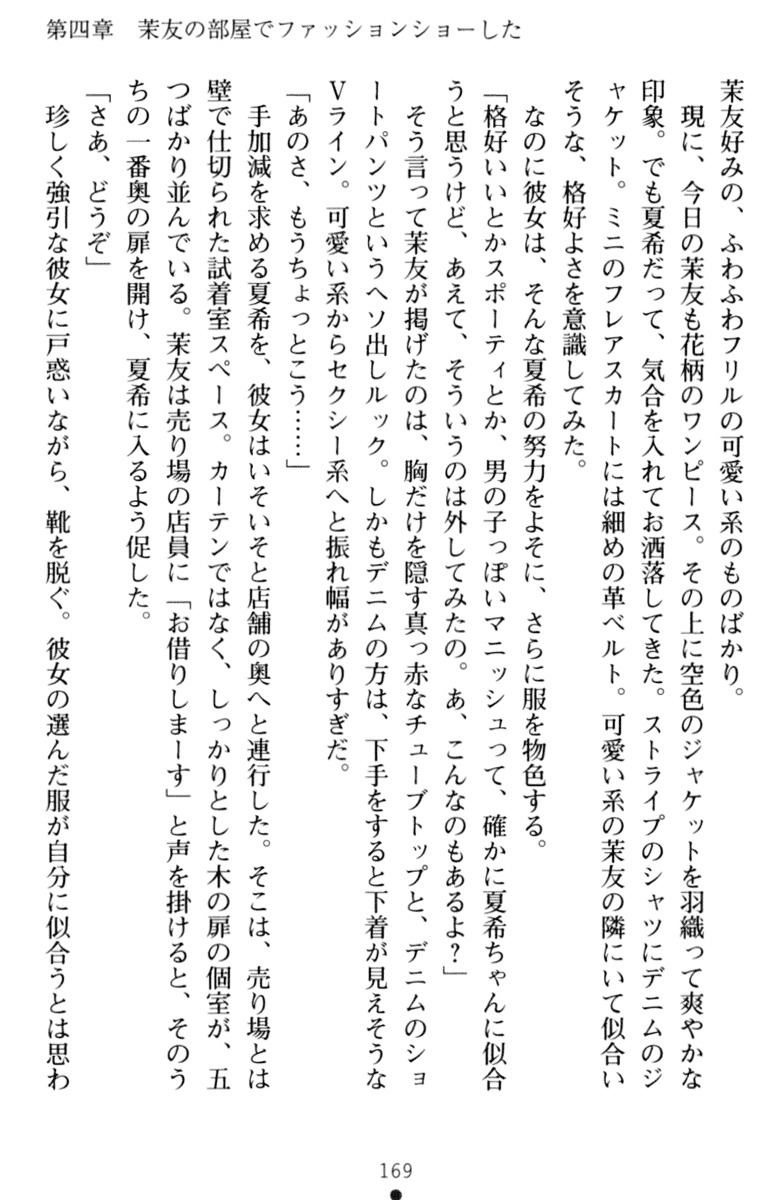 第四章　茉友の部屋でファッションショーした
茉友好みの、ふわふわフリルの可愛い系のものばかり。
　現に、今日の茉友も花柄のワンピース。その上に空色のジャケットを羽織って爽やかな
印象。でも夏希だって、気合を入れてお洒落してきた。ストライプのシャツにデニムのジ
ャケット。ミニのフレアスカートには細めの革ベルト。可愛い系の茉友の隣にいて似合い
そうな、格好よさを意識してみた。
　なのに彼女は、そんな夏希の努力をよそに、さらに服を物色する。
「格好いいとかスポーティとか、男の子っぽいマニッシュって、確かに夏希ちゃんに似合
うと思うけど、あえて、そういうのは外してみたの。あ、こんなのもあるよ？」
　そう言って茉友が掲げたのは、胸だけを隠す真っ赤なチューブトップと、デニムのショ
ートパンツというヘソ出しルック。しかもデニムの方は、下手をすると下着が見えそうな
Ｖライン。可愛い系からセクシー系へと振れ幅がありすぎだ。
「あのさ、もうちょっとこう……」
　手加減を求める夏希を、彼女はいそいそと店舗の奥へと連行した。そこは、売り場とは
壁で仕切られた試着室スペース。カーテンではなく、しっかりとした木の扉の個室が、五
つばかり並んでいる。茉友は売り場の店員に「お借りしまーす」と声を掛けると、そのう
ちの一番奥の扉を開け、夏希に入るよう促した。
「さあ、どうぞ」
　珍しく強引な彼女に戸惑いながら、靴を脱ぐ。彼女の選んだ服が自分に似合うとは思わ
169